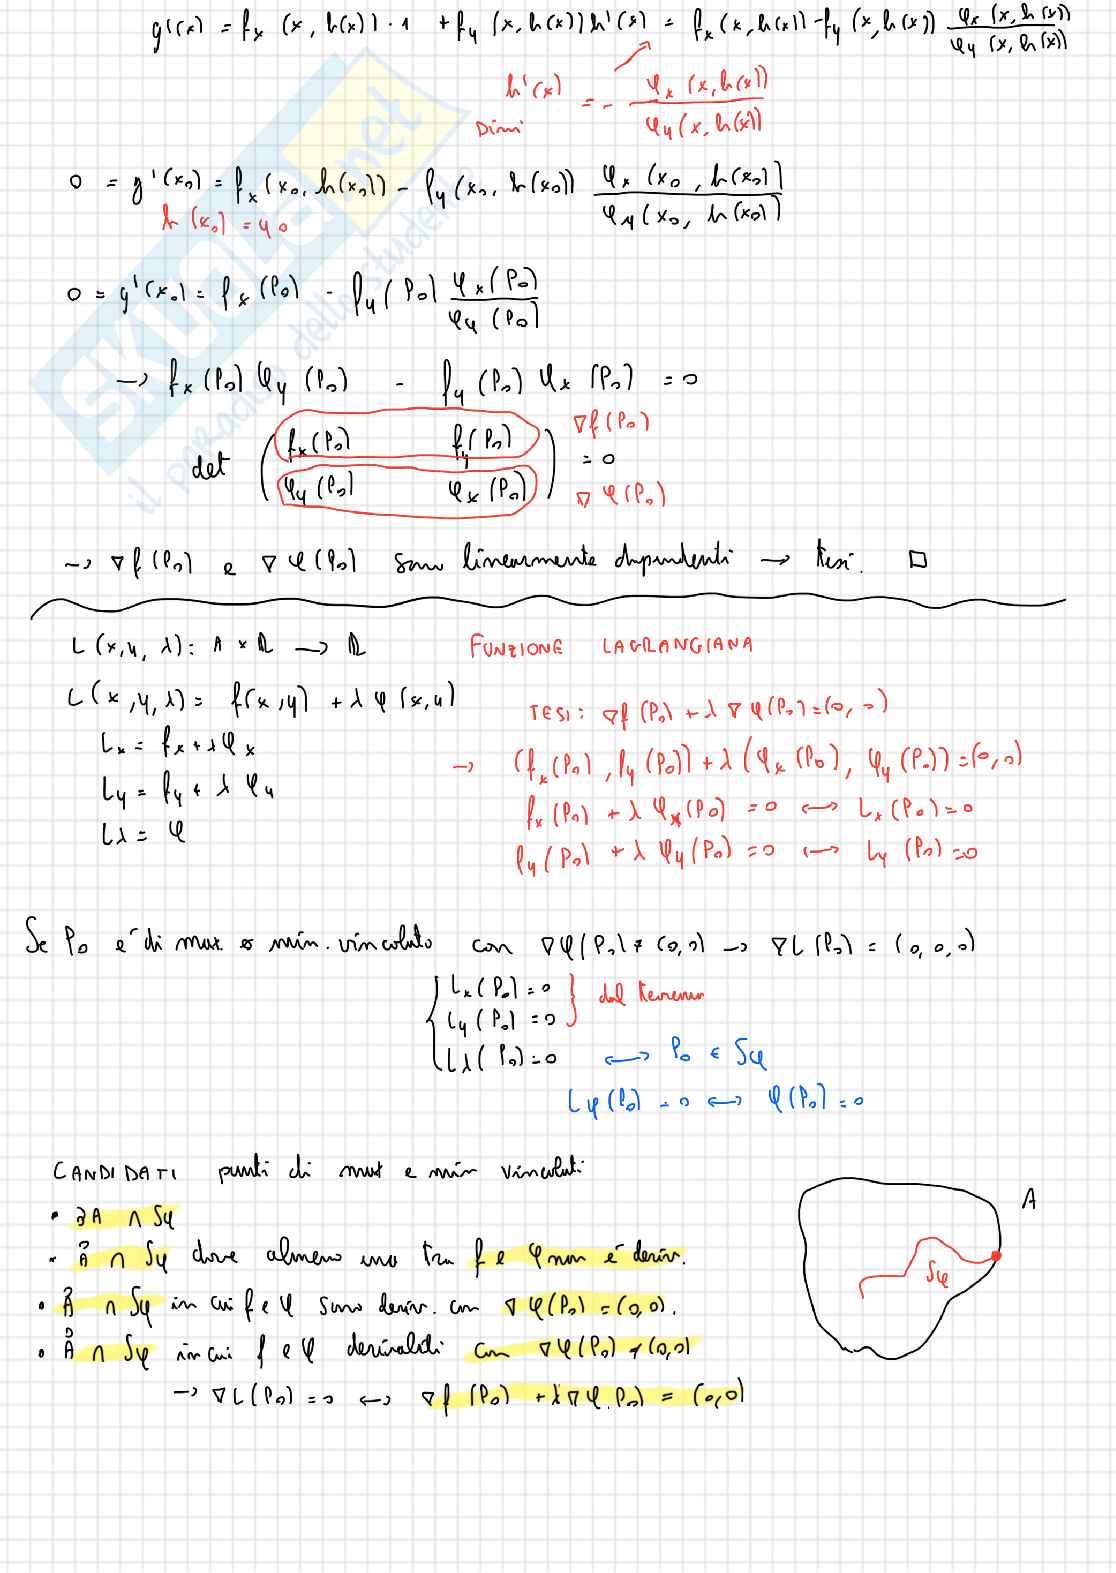 g'(x) = fx (x, h(x)) · 1 + fy (x, h(x)) h'(x) = fx (x, h(x)) - fy (x, h(x)) φx (x, h(x)) / φy (x, h(x))
h'(x) = - φx (x, h(x)) / φy (x, h(x))
Dini
0 = g'(x0) = fx (x0, h(x0)) - fy (x0, h(x0)) φx (x0, h(x0)) / φy (x0, h(x0))
h (x0) = y0
0 = g'(x0) = fx (P0) - fy (P0) φx (P0) / φy (P0)
→ fx (P0) φy (P0) - fy (P0) φx (P0) = 0
det ( fx (P0) fy (P0) ∇f (P0)
φy (P0) φx (P0) ) = 0 ∇ φ (P0)
→ ∇f (P0) e ∇ φ (P0) sono linearmente dipendenti → tesi. □
L (x, y, λ): A × ℝ → ℝ FUNZIONE LAGRANGIANA
L (x, y, λ) = f(x, y) + λ φ (x, y)
TESI: ∇f (P0) + λ ∇ φ (P0) = (0, 0)
Lx = fx + λ φx
→ (fx (P0), fy (P0)) + λ (φx (P0), φy (P0)) = (0, 0)
Ly = fy + λ φy
fx (P0) + λ φx (P0) = 0 ↔ Lx (P0) = 0
Lλ = φ
fy (P0) + λ φy (P0) = 0 ↔ Ly (P0) = 0
Se P0 è di max o min. vincolato con ∇φ (P0) ≠ (0, 0) → ∇L (P0) = (0, 0, 0)
{ Lx (P0) = 0
Ly (P0) = 0 } dal teorema
Lλ (P0) = 0 ↔ P0 ∈ Sφ
Lφ (P0) = 0 ↔ φ (P0) = 0
CANDIDATI punti di max e min vincolati
• ∂A ∩ Sφ
• Å ∩ Sφ dove almeno uno tra f e φ non è deriv.
• Å ∩ Sφ in cui f e φ sono deriv. con ∇ φ (P0) = (0, 0).
• Å ∩ Sφ in cui f e φ derivabili con ∇φ (P0) ≠ (0, 0)
→ ∇L (P0) = 0 ↔ ∇f (P0) + λ ∇ φ (P0) = (0, 0)
A
Sφ
SKUOLA.net
il paradiso dello studente